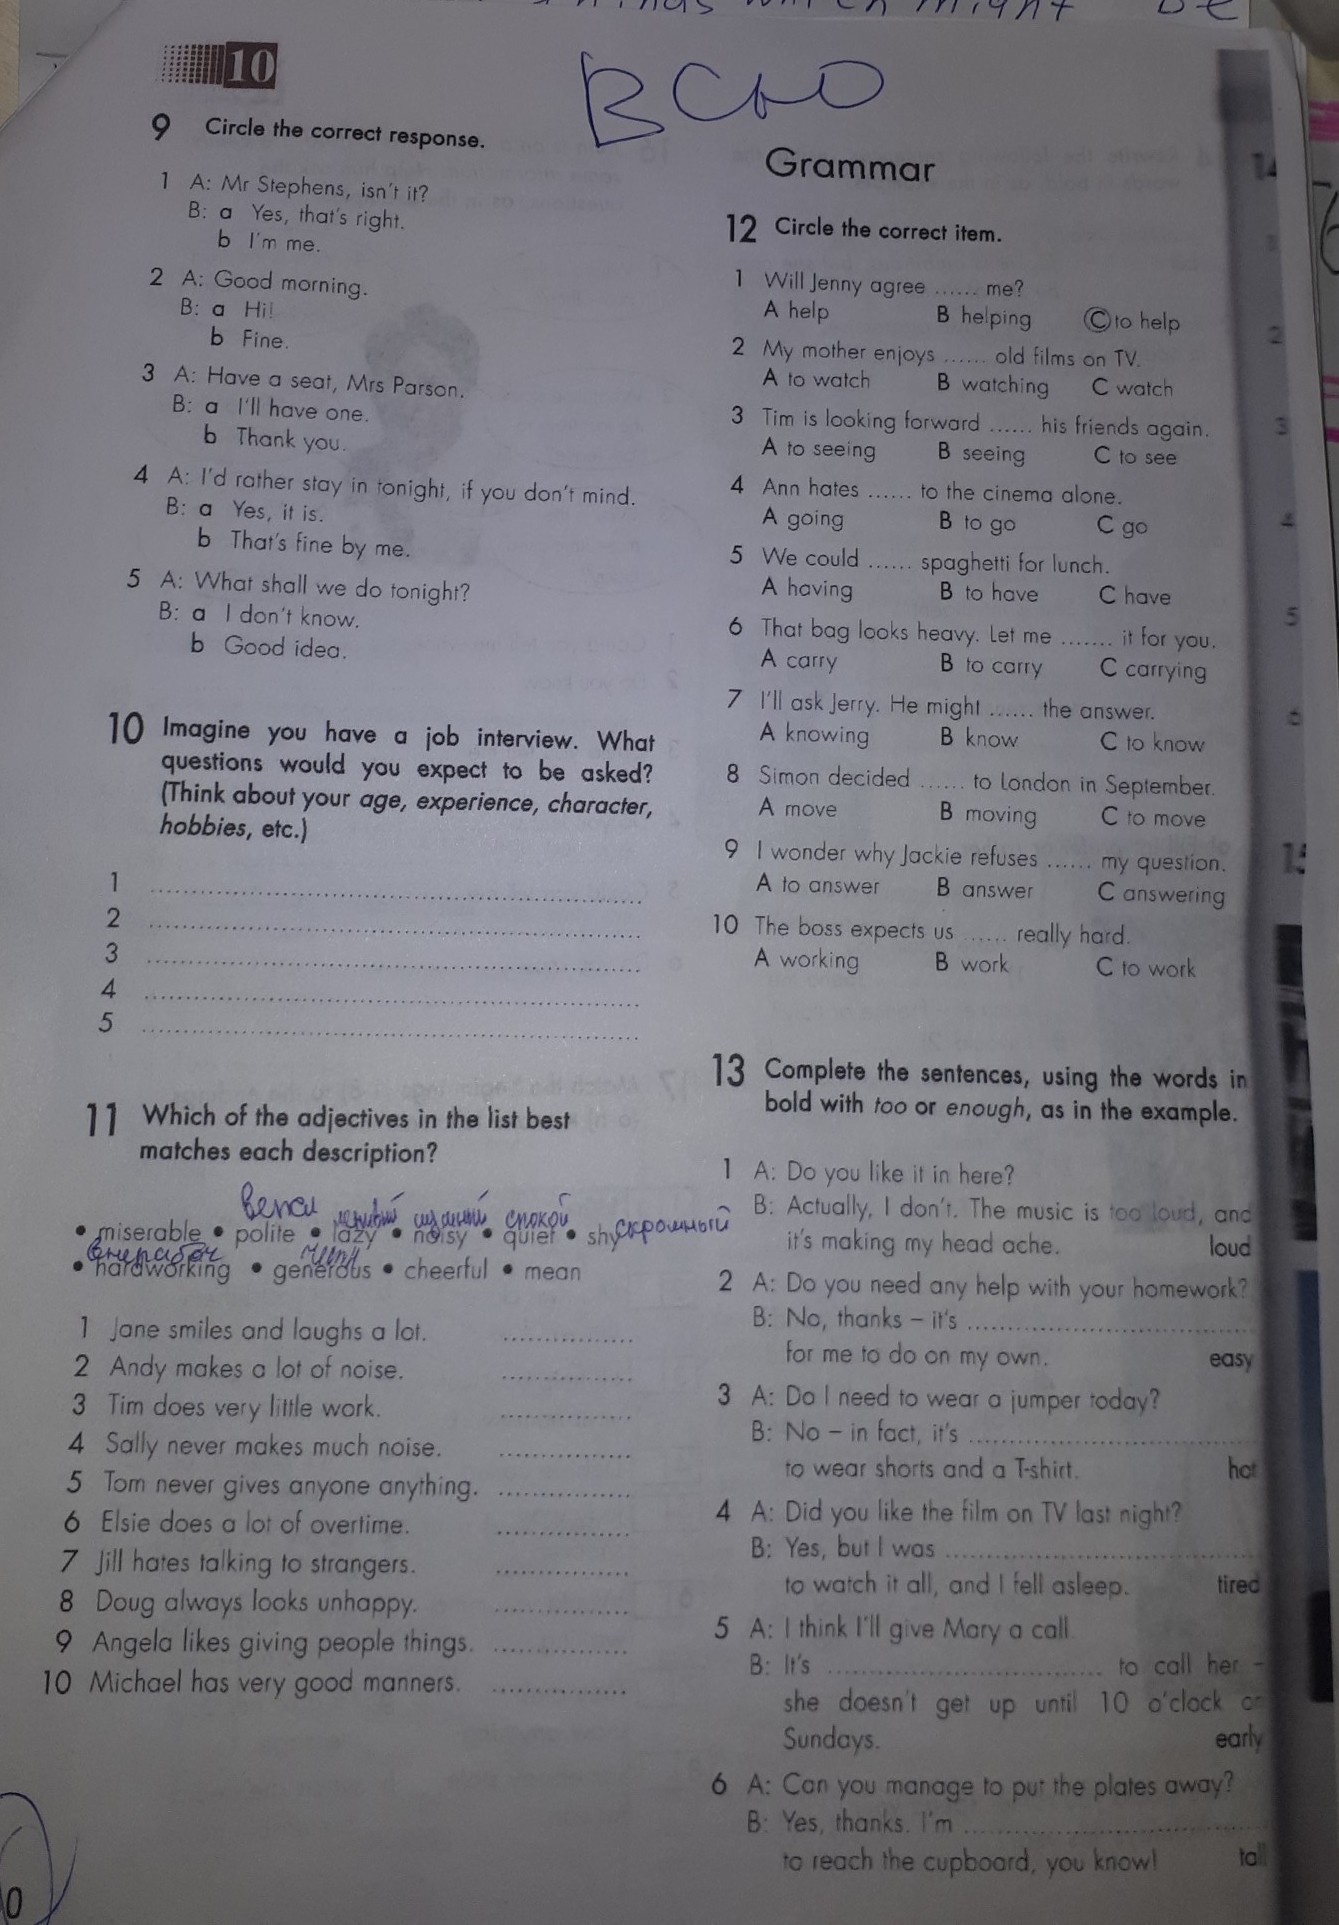 things which might be
10
ВСЮ
9 Circle the correct response.
1 A: Mr Stephens, isn't it?
B: a Yes, that's right.
b I'm me.
2 A: Good morning.
B: a Hi!
b Fine.
3 A: Have a seat, Mrs Parson.
B: a I'll have one.
b Thank you.
4 A: I'd rather stay in tonight, if you don't mind.
B: a Yes, it is.
b That's fine by me.
5 A: What shall we do tonight?
B: a I don't know.
b Good idea.
10 Imagine you have a job interview. What
questions would you expect to be asked?
(Think about your age, experience, character,
hobbies, etc.)
1 ......
2 ......
3 ......
4 ......
5 ......
11 Which of the adjectives in the list best
matches each description?
ленивый шумный спокой
• miserable • polite • lazy • noisy • quiet • shy скромный
• hardworking • generous • cheerful • mean
1 Jane smiles and laughs a lot. ......
2 Andy makes a lot of noise. ......
3 Tim does very little work. ......
4 Sally never makes much noise. ......
5 Tom never gives anyone anything. ......
6 Elsie does a lot of overtime. ......
7 Jill hates talking to strangers. ......
8 Doug always looks unhappy. ......
9 Angela likes giving people things. ......
10 Michael has very good manners. ......
0
Grammar
12 Circle the correct item.
1 Will Jenny agree ...... me?
A help B helping C to help
2 My mother enjoys ...... old films on TV.
A to watch B watching C watch
3 Tim is looking forward ...... his friends again.
A to seeing B seeing C to see
4 Ann hates ...... to the cinema alone.
A going B to go C go
5 We could ...... spaghetti for lunch.
A having B to have C have
6 That bag looks heavy. Let me ....... it for you.
A carry B to carry C carrying
7 I'll ask Jerry. He might ...... the answer.
A knowing B know C to know
8 Simon decided ...... to London in September.
A move B moving C to move
9 I wonder why Jackie refuses ...... my question.
A to answer B answer C answering
10 The boss expects us ...... really hard.
A working B work C to work
13 Complete the sentences, using the words in
bold with too or enough, as in the example.
1 A: Do you like it in here?
B: Actually, I don't. The music is too loud, and
it's making my head ache. loud
2 A: Do you need any help with your homework?
B: No, thanks – it's ......
for me to do on my own. easy
3 A: Do I need to wear a jumper today?
B: No – in fact, it's ......
to wear shorts and a T-shirt. hot
4 A: Did you like the film on TV last night?
B: Yes, but I was ......
to watch it all, and I fell asleep. tired
5 A: I think I'll give Mary a call.
B: It's ...... to call her –
she doesn't get up until 10 o'clock on
Sundays. early
6 A: Can you manage to put the plates away?
B: Yes, thanks. I'm ......
to reach the cupboard, you know! tall
2
3
4
5
6